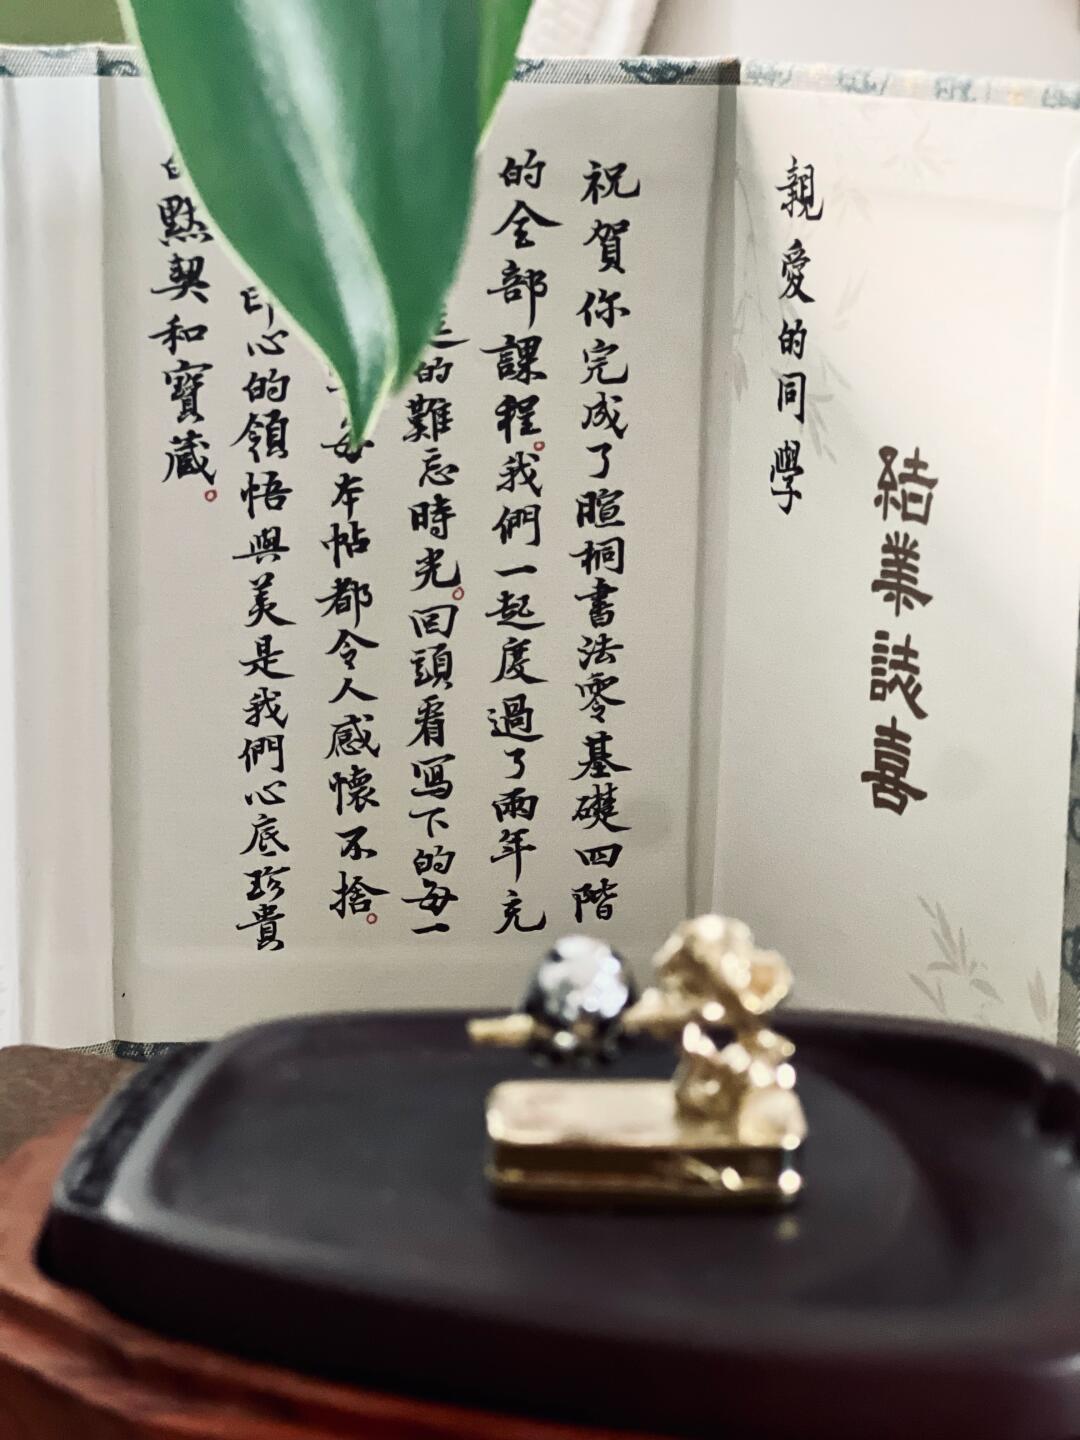 結業證書
親愛的同學
祝賀你完成了暄桐書法零基礎四階
的全部課程。我們一起度過了兩年充
的難忘時光。回頭看寫下的每一
每本帖都令人感懷不捨。
印心的領悟與美是我們心底珍貴
默契和寶藏。